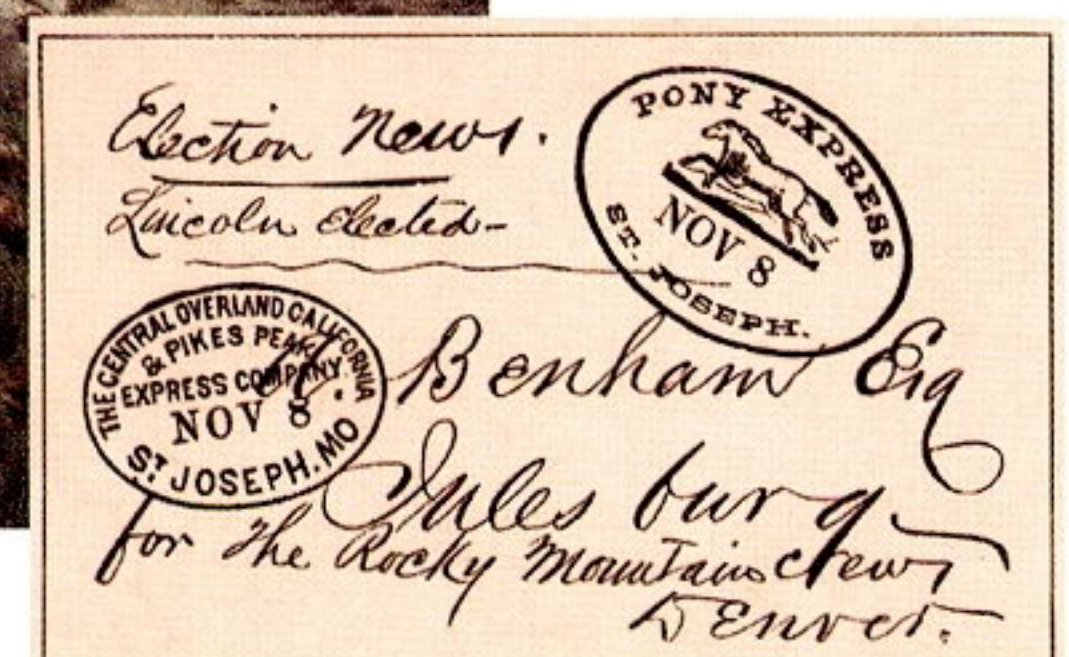 Election News.
Lincoln Elected-
PONY EXPRESS
NOV 8
ST. JOSEPH.
THE CENTRAL OVERLAND CALIFORNIA
& PIKES PEAK
EXPRESS COMPANY.
NOV 8
ST JOSEPH. MO
Benham Esq
Julesburg
for the Rocky Mountain News
Denver.